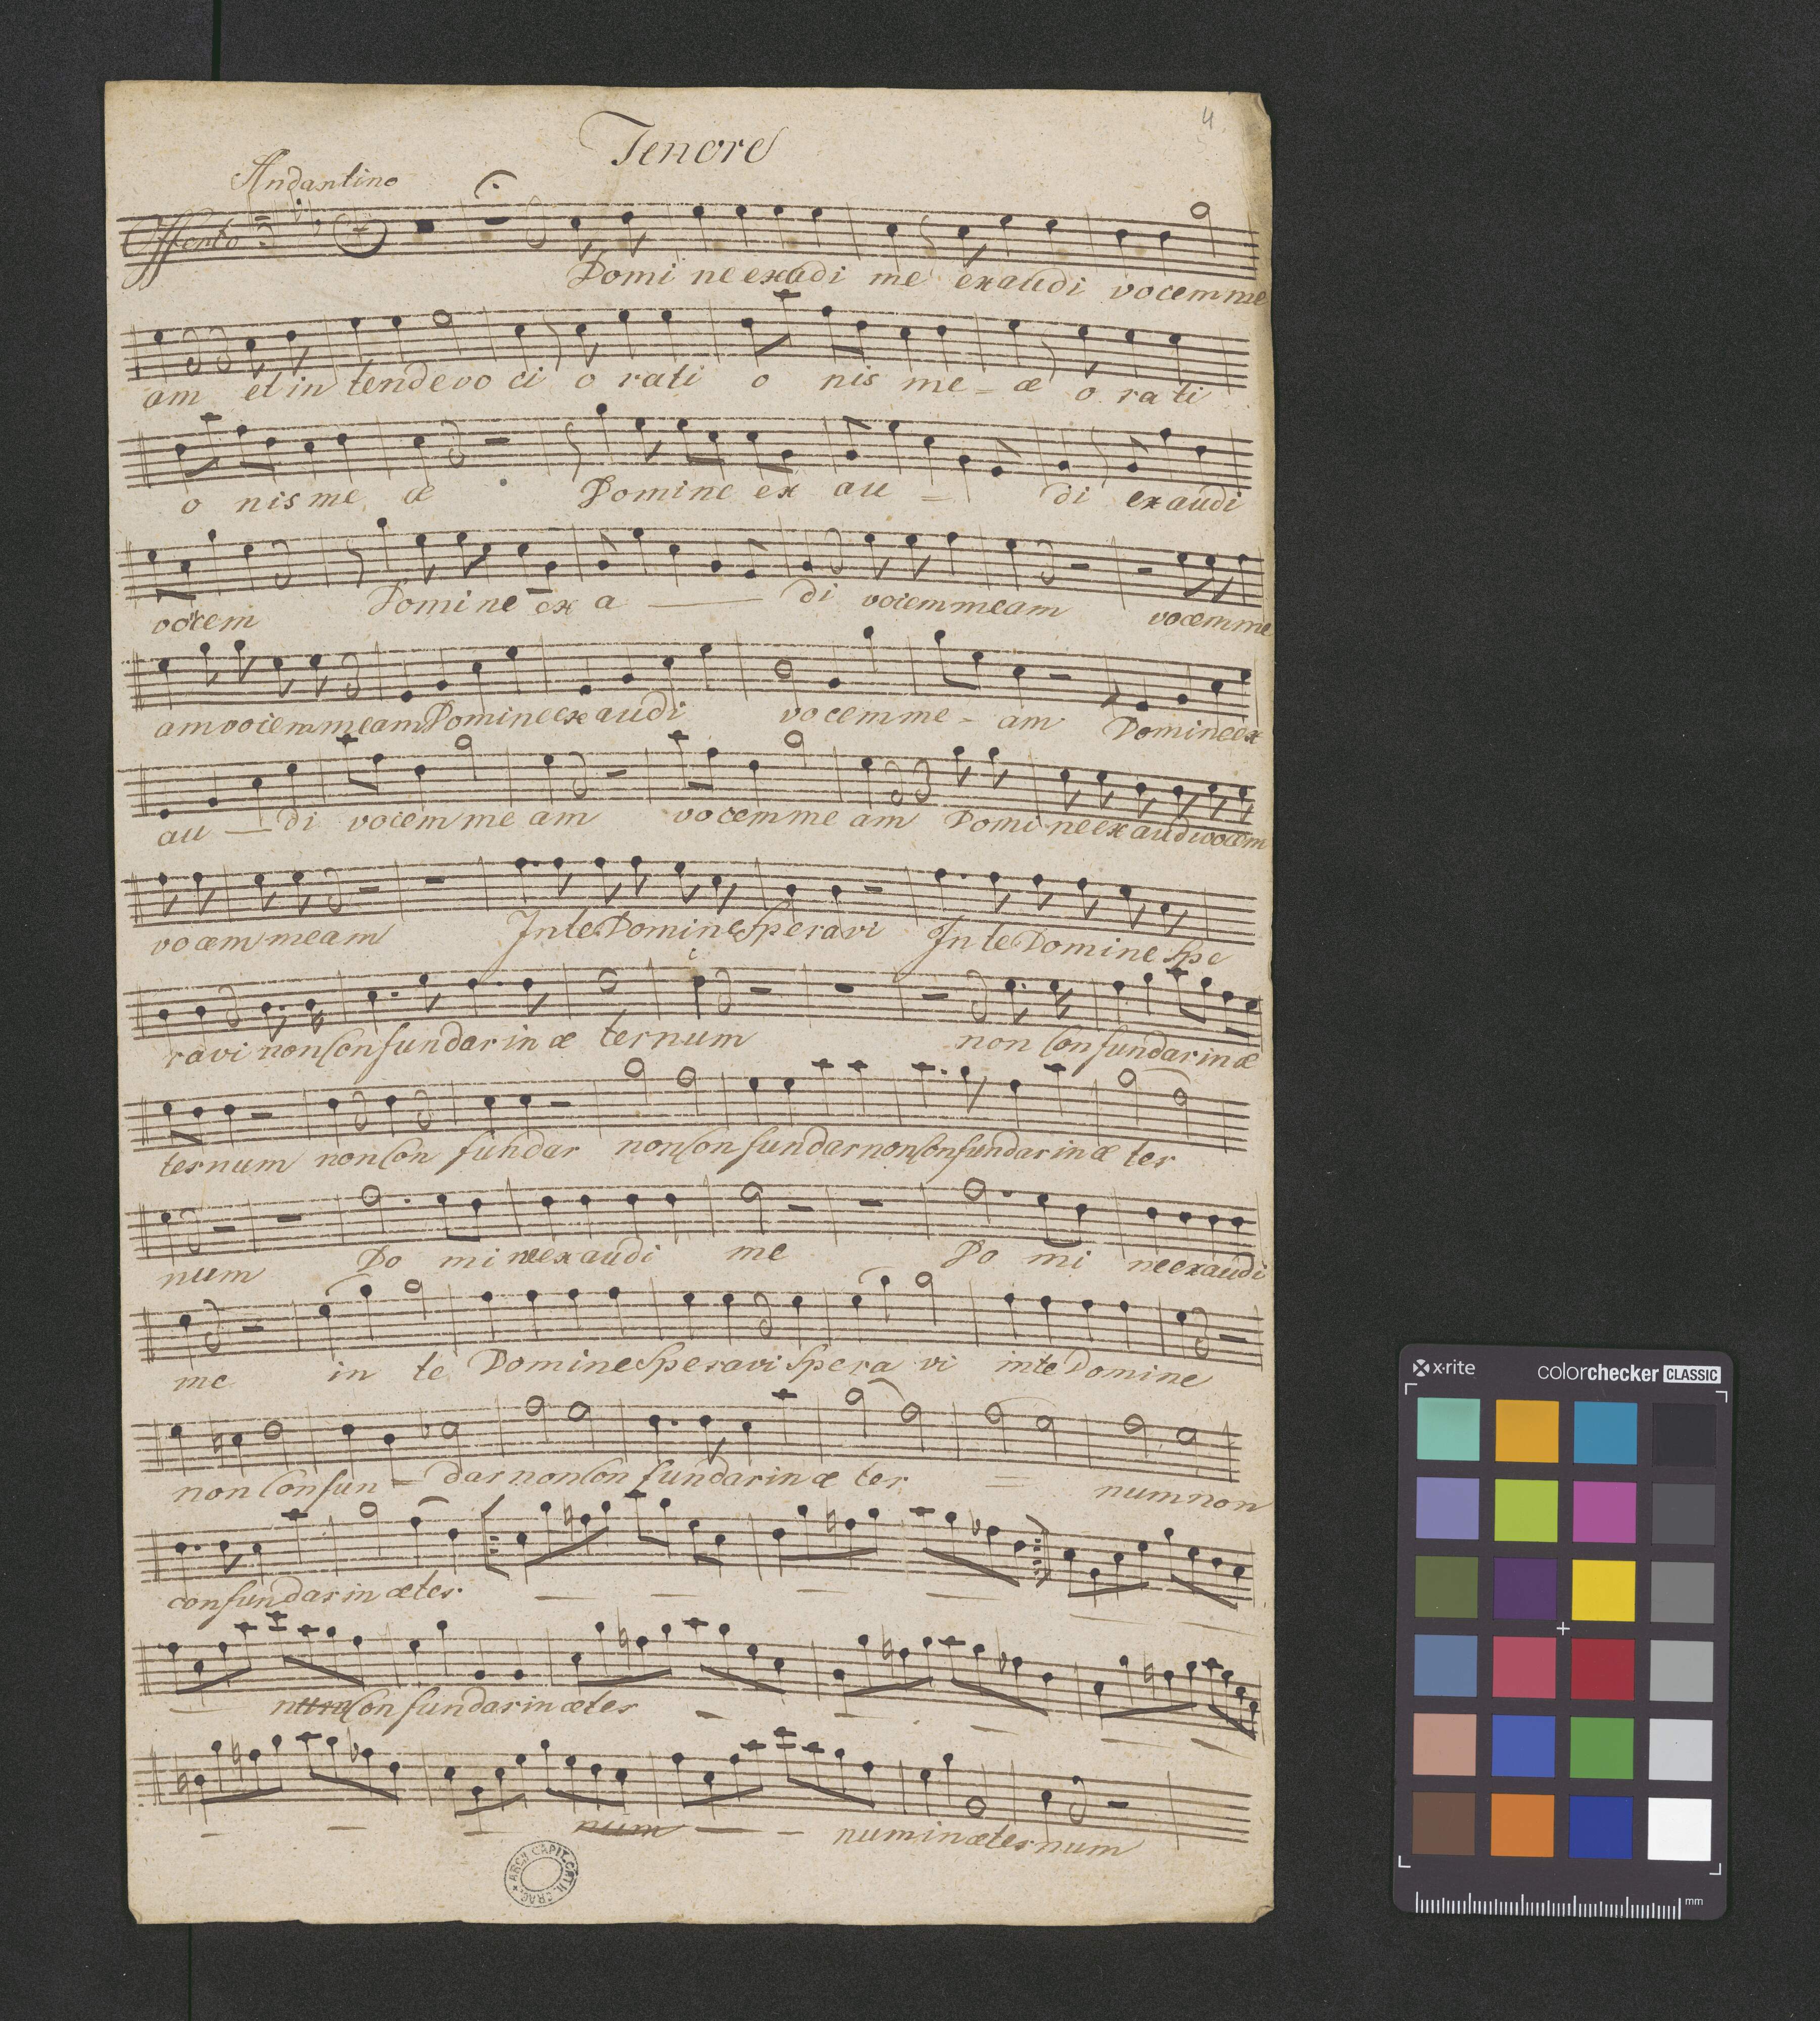 4.
Tenore
Andantino
Offerto
Domi ne exaudi me exaudi vocem me
am et in tende vo ci o rati o nis me - æ o ra ti
o nis me æ Domine ex au - di exaudi
vocem Domine ex a — di vocem meam vocem me
am vocem meam Domine ex audi vocem me - am Domine ex
au — di vocem me am vocem me am Domi ne ex audi vocem
vocem meam In te Domine Speravi In te Domine Spe
ravi non Confundar in æ ternum non Confundar in æ
ternum non Con fundar non Confundar non Confundar in æ ter
num Do mi ne exaudi me Do mi ne exaudi
me in te Domine Speravi Spera vi in te Domine
non Confun - dar non Con fundar in æ ter = num non
confundar in æter - - - - - -
- num Con fundar in æter - - - - -
- - - num — - num in æternum
ARCH. CAPIT. CATH. CRAC.
x-rite
colorchecker CLASSIC
mm